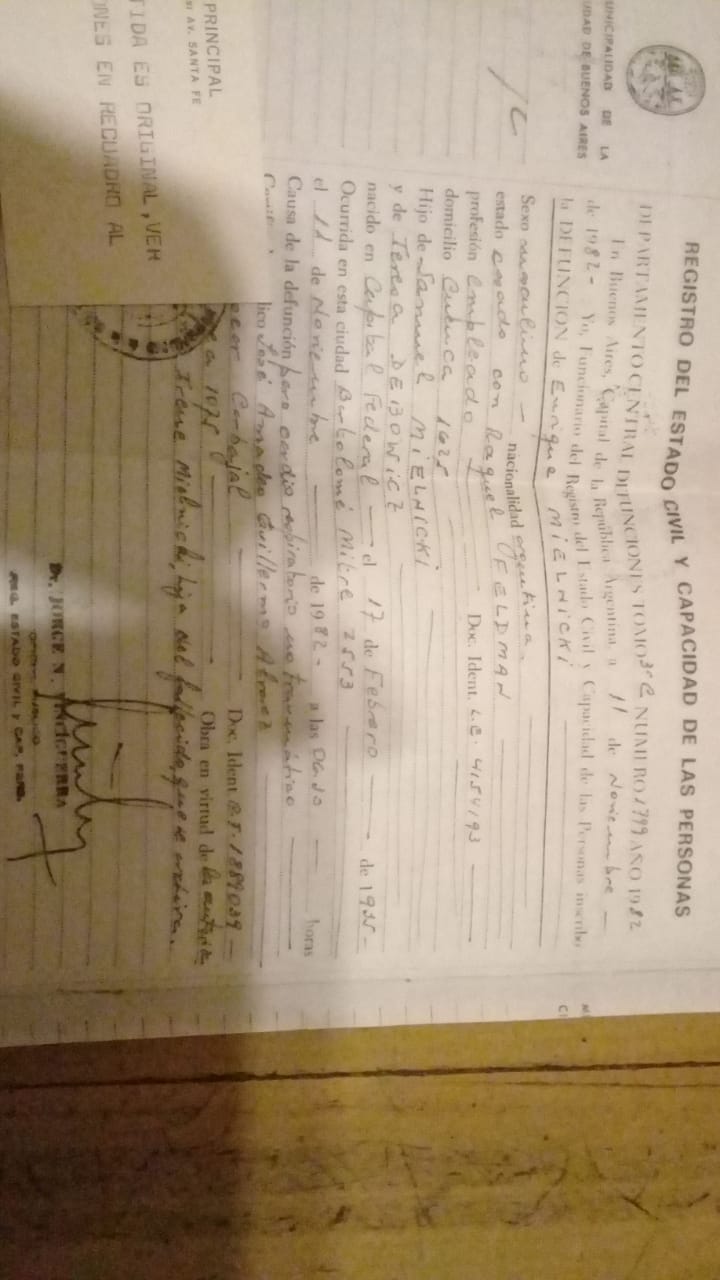 UNICIPALIDAD DE LA
UDAD DE BUENOS AIRES
REGISTRO DEL ESTADO CIVIL Y CAPACIDAD DE LAS PERSONAS
DEPARTAMENTO CENTRAL DEFUNCIONES TOMO 3º C NUMERO 1799 AÑO 1982
En Buenos Aires, Capital de la República Argentina, a 11 de Noviembre
de 1982 - Yo, Funcionario del Registro del Estado Civil y Capacidad de las Personas inscribo
la DEFUNCION de Enrique MIELNICKI
Sexo masculino - nacionalidad argentina.
estado casado con Raquel FELDMAN
profesión Empleado Doc. Ident. L.C. 4154193
domicilio Cuenca 1625
Hijo de Samuel MIELNICKI
y de Teresa DEIBOWICZ
nacido en Capital Federal el 17 de Febrero de 1925 -
Ocurrida en esta ciudad Bartolomé Mitre 2553
el 11 de Noviembre de 1982 - a las horas
Causa de la defunción paro cardio respiratorio no traumático
lico José Amadeo Guillermo
Carbajal Doc. Ident. 1889039 -
1075 Obra en virtud de la
Irene Mielnicki, hija del fallecido, que se archiva.
PRINCIPAL
AV. SANTA FE
TIDA ES ORIGINAL, VER
ONES EN RECUADRO AL
Dr. JORGE N.
REG. ESTADO CIVIL y CAP. PERS.